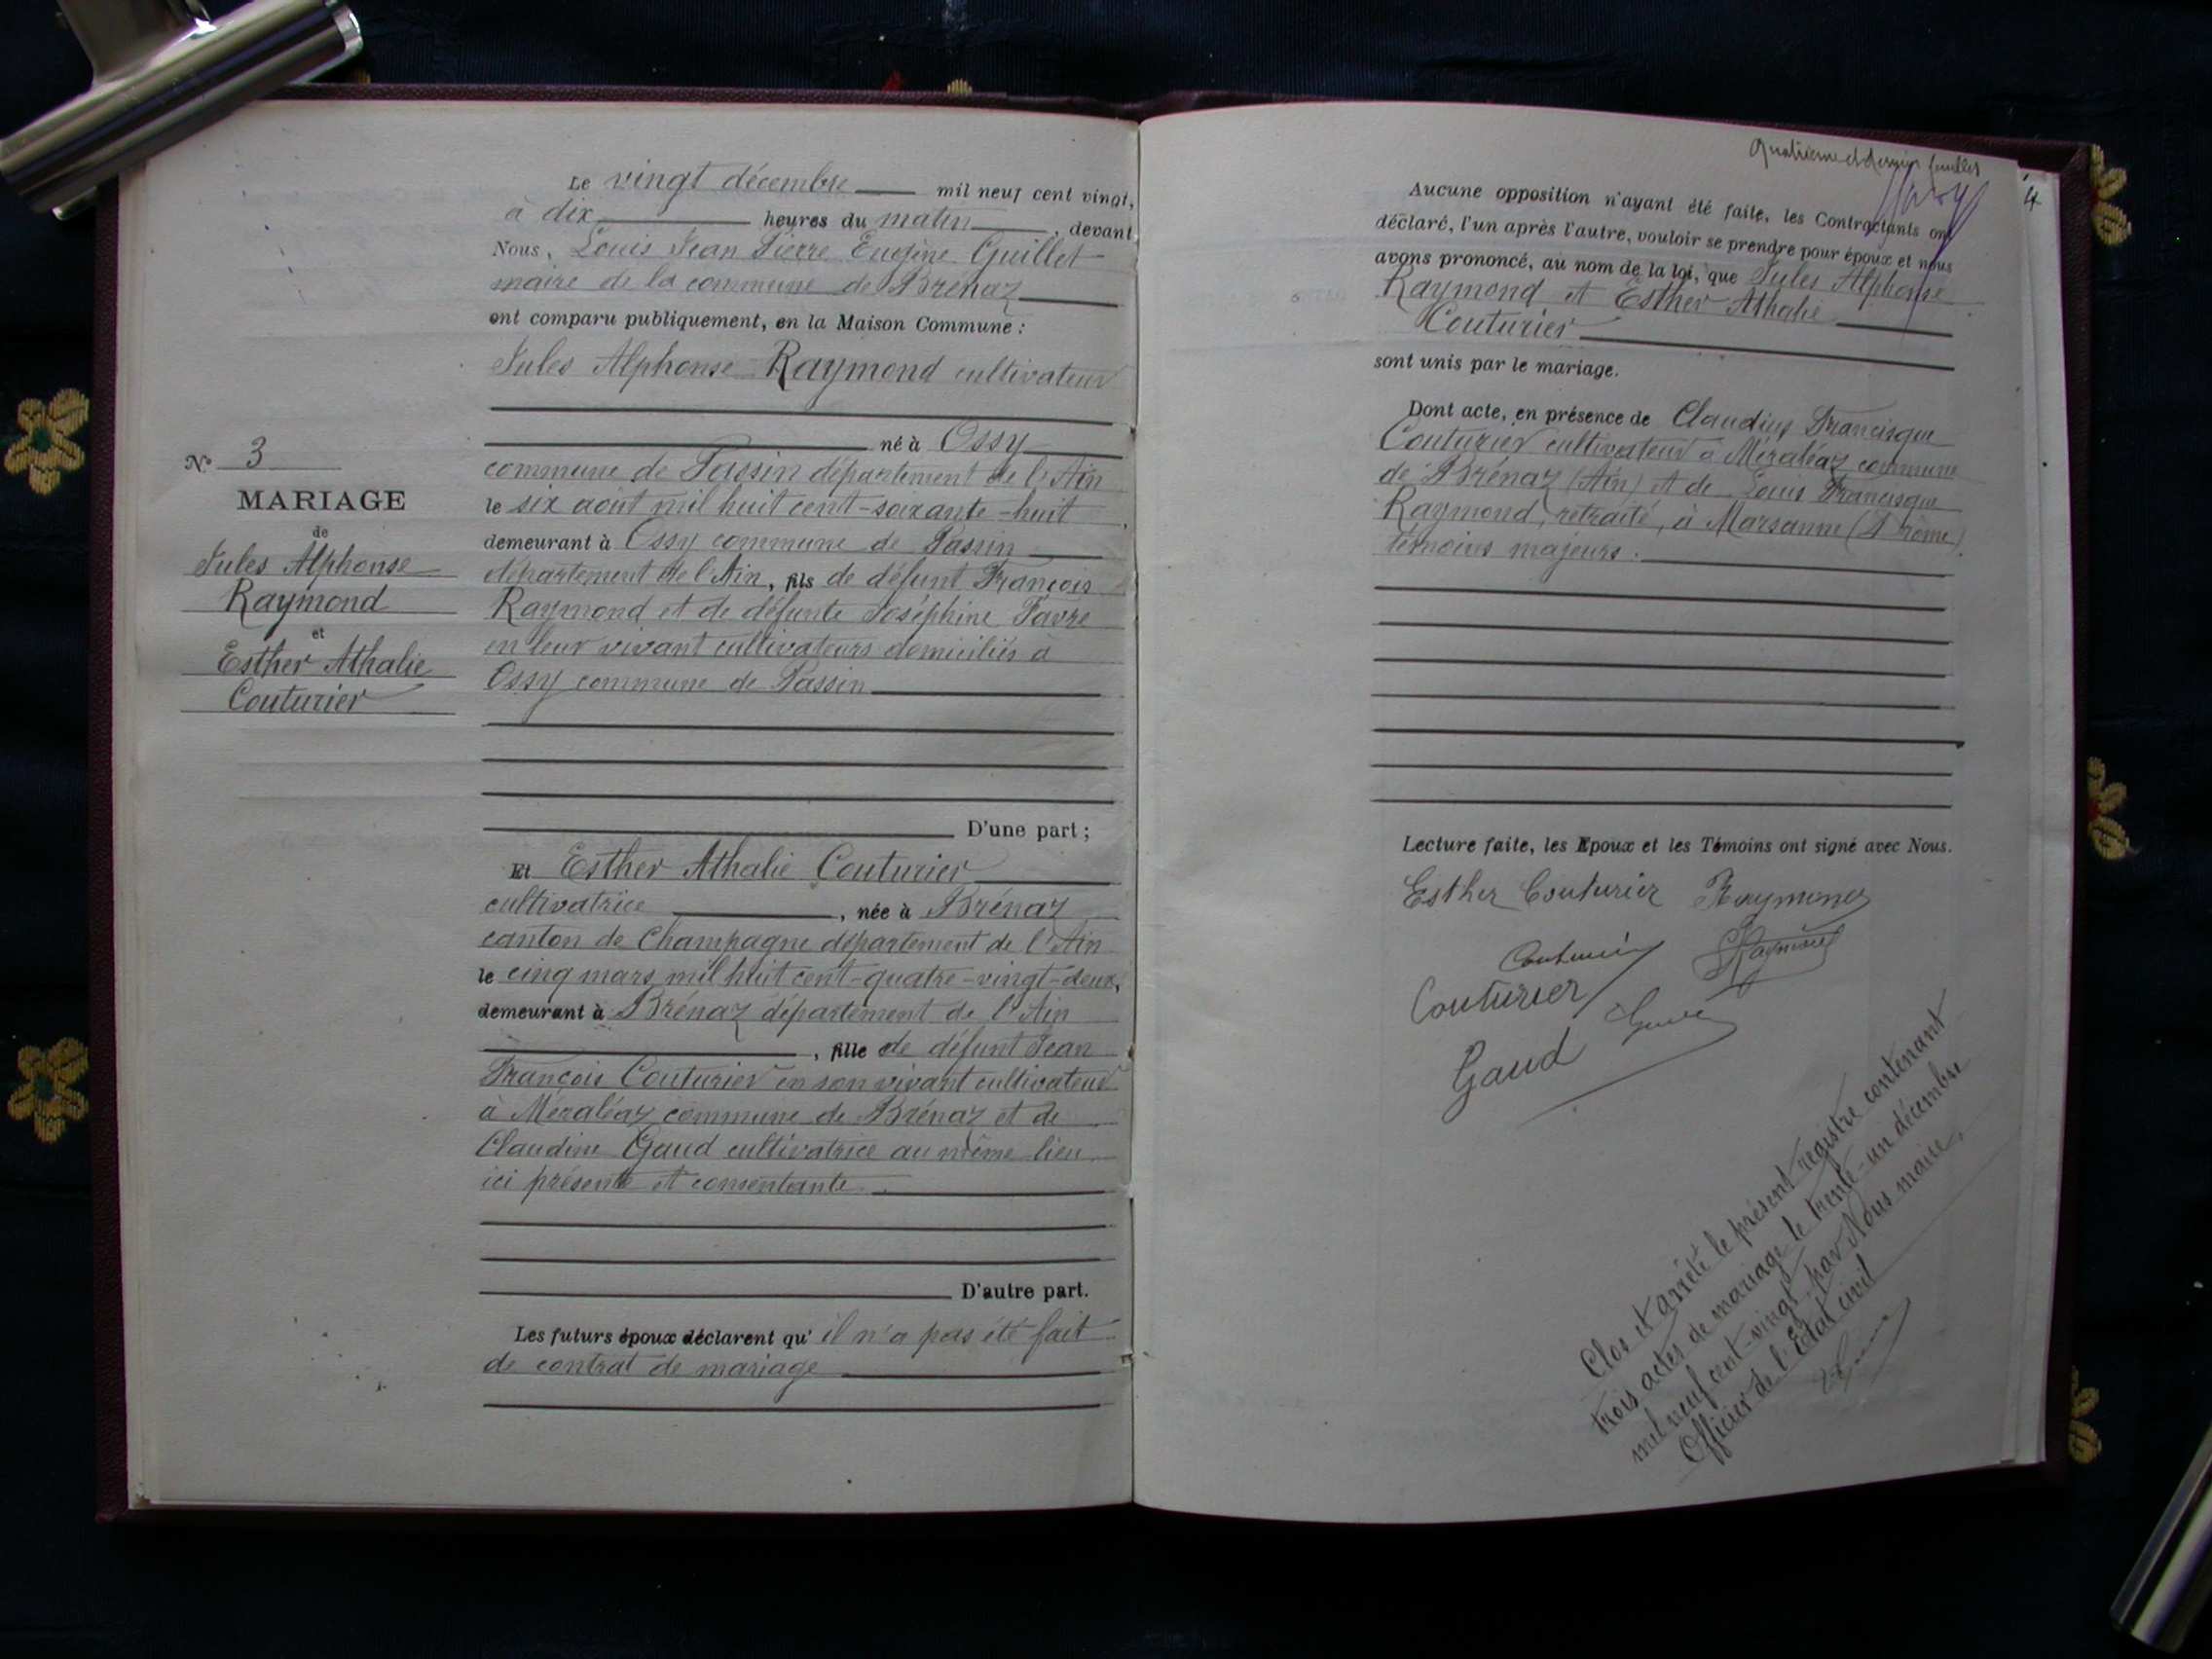 Nº 3
MARIAGE
de
Jules Alphonse
Raymond
et
Esther Athalie
Couturier
Le vingt décembre mil neuf cent vingt,
à dix heures du matin, devant
Nous, Louis Jean Pierre Eugène Guillet
maire de la commune de Brénaz
ont comparu publiquement, en la Maison Commune :
Jules Alphonse Raymond cultivateur
né à Ossy
commune de Passin département de l'Ain
le six août mil huit cent-soixante-huit
demeurant à Ossy commune de Passin
département de l'Ain, fils de défunt François
Raymond et de défunte Joséphine Favre
en leur vivant cultivateurs domiciliés à
Ossy commune de Passin
D'une part ;
Et Esther Athalie Couturier
cultivatrice, née à Brénaz
canton de Champagne département de l'Ain
le cinq mars mil huit cent-quatre-vingt-deux,
demeurant à Brénaz département de l'Ain
, fille de défunt Jean
François Couturier en son vivant cultivateur
à Méraléaz commune de Brénaz et de
Claudine Gaud cultivatrice au même lieu
ici présente et consentante.
D'autre part.
Les futurs époux déclarent qu'il n'a pas été fait
de contrat de mariage
Quatrième et dernier feuillet
4
Aucune opposition n'ayant été faite, les Contractants ont
déclaré, l'un après l'autre, vouloir se prendre pour époux et nous
avons prononcé, au nom de la loi, que Jules Alphonse
Raymond et Esther Athalie
Couturier
sont unis par le mariage.
Dont acte, en présence de Claudius Francisque
Couturier cultivateur à Méraléaz commune
de Brénaz (Ain) et de Louis Francisque
Raymond, retraité, à Marsanne (Drôme).
témoins majeurs.
Lecture faite, les Epoux et les Témoins ont signé avec Nous.
Esther Couturier Raymond
Couturier Raymond
Couturier
Gaud
Clos et arrêté le présent registre contenant
trois actes de mariage le trente-un décembre
mil neuf cent-vingt, par Nous maire,
Officier de l'Etat civil